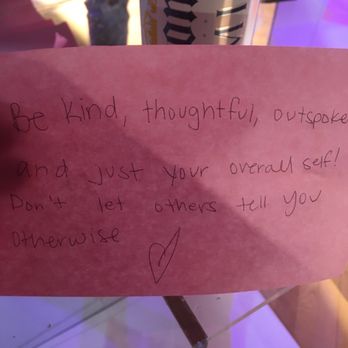 Be Kind, thoughtful, outspoke
and just your overall self!
Don't let others tell you
otherwise